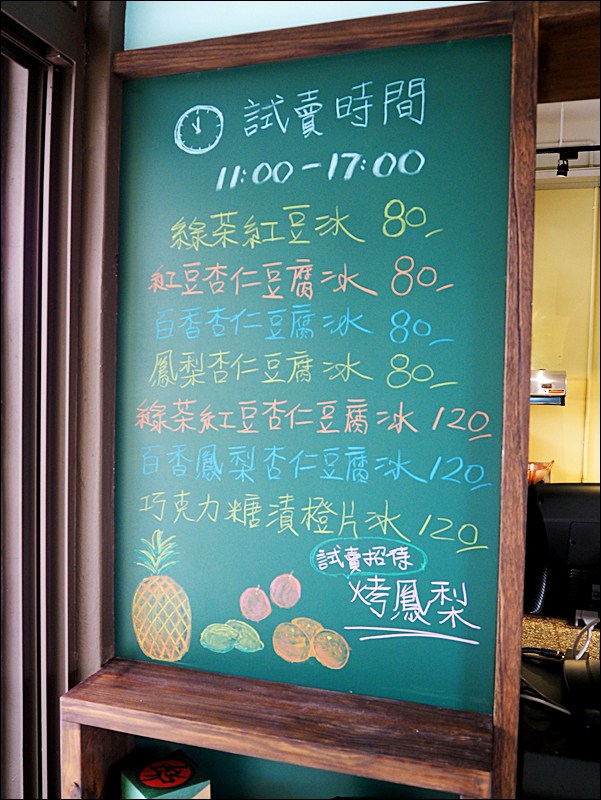 試賣時間
11:00-17:00
綠茶紅豆冰 80
紅豆杏仁豆腐冰 80
百香杏仁豆腐冰 80
鳳梨杏仁豆腐冰 80
綠茶紅豆杏仁豆腐冰 120
百香鳳梨杏仁豆腐冰 120
巧克力糖漬橙片冰 120
試賣招待
烤鳳梨